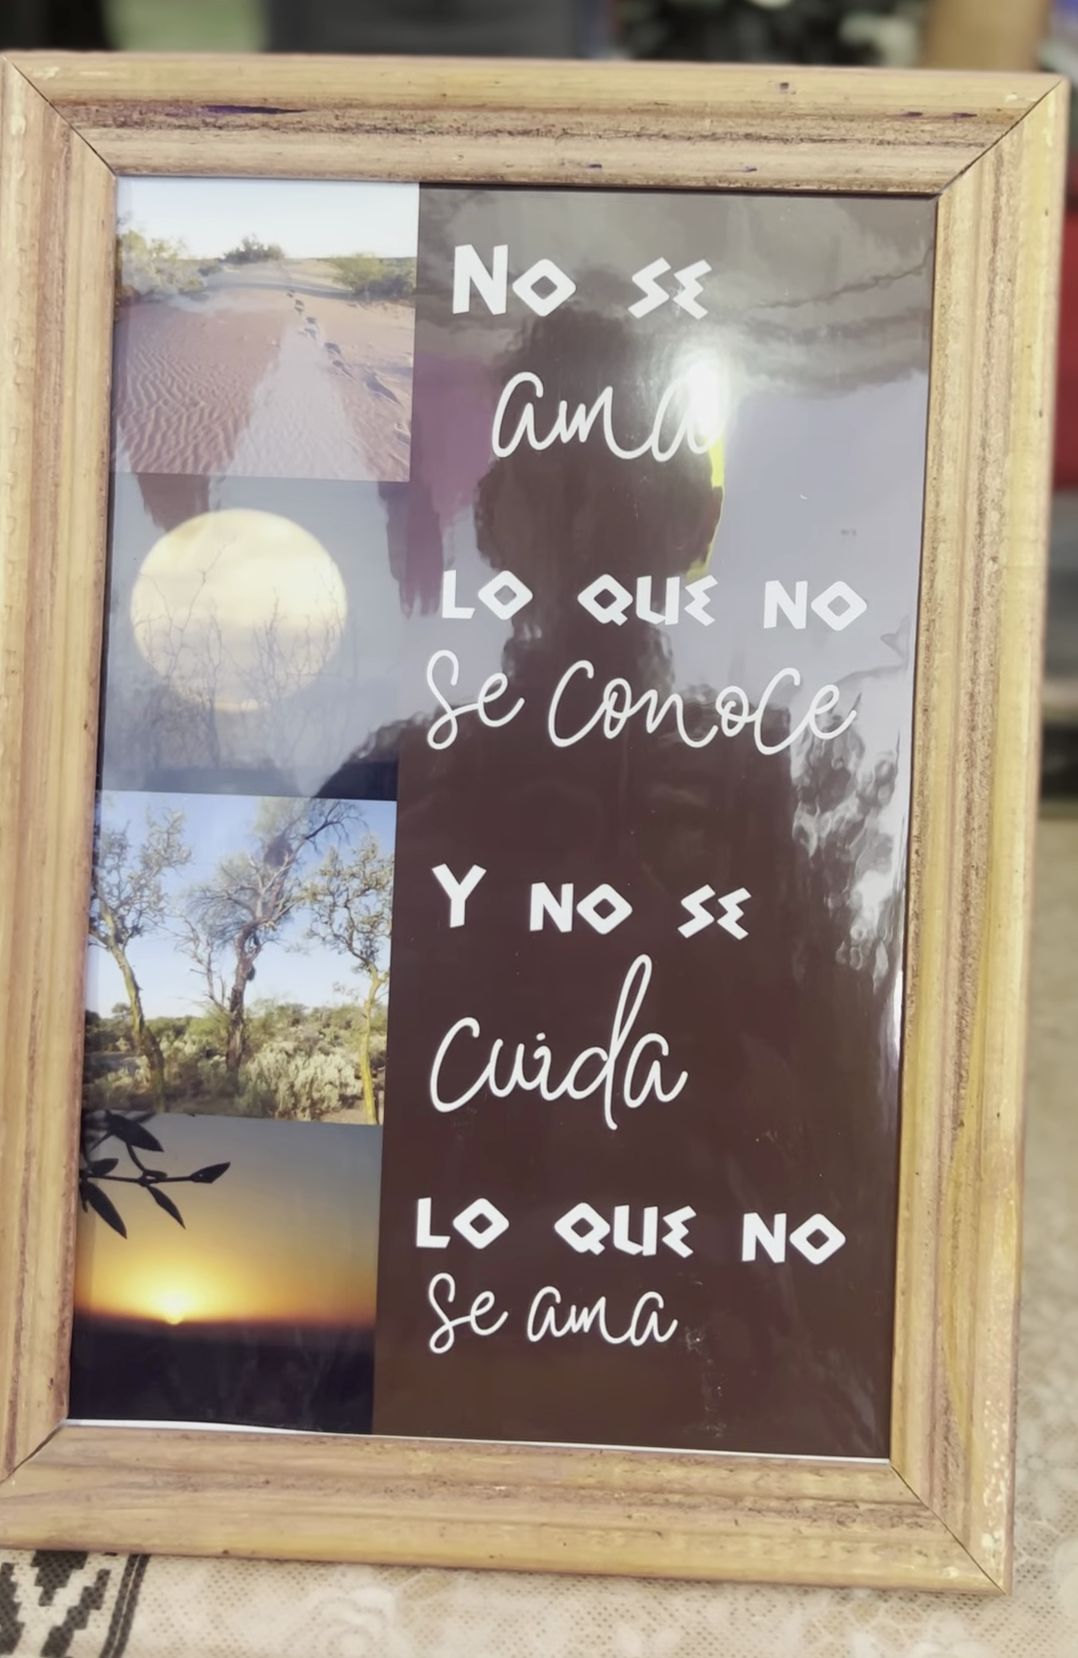 NO SE
ama
LO QUE NO
se conoce
Y NO SE
cuida
LO QUE NO
se ama